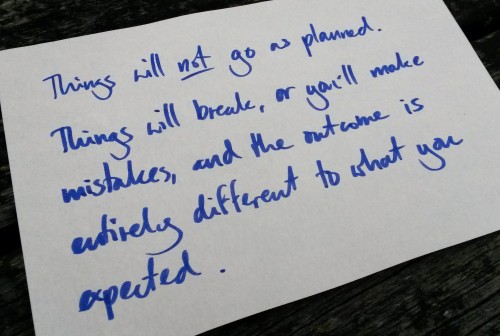 Things will not go as planned.
Things will break, or you'll make
mistakes, and the outcome is
entirely different to what you
expected.